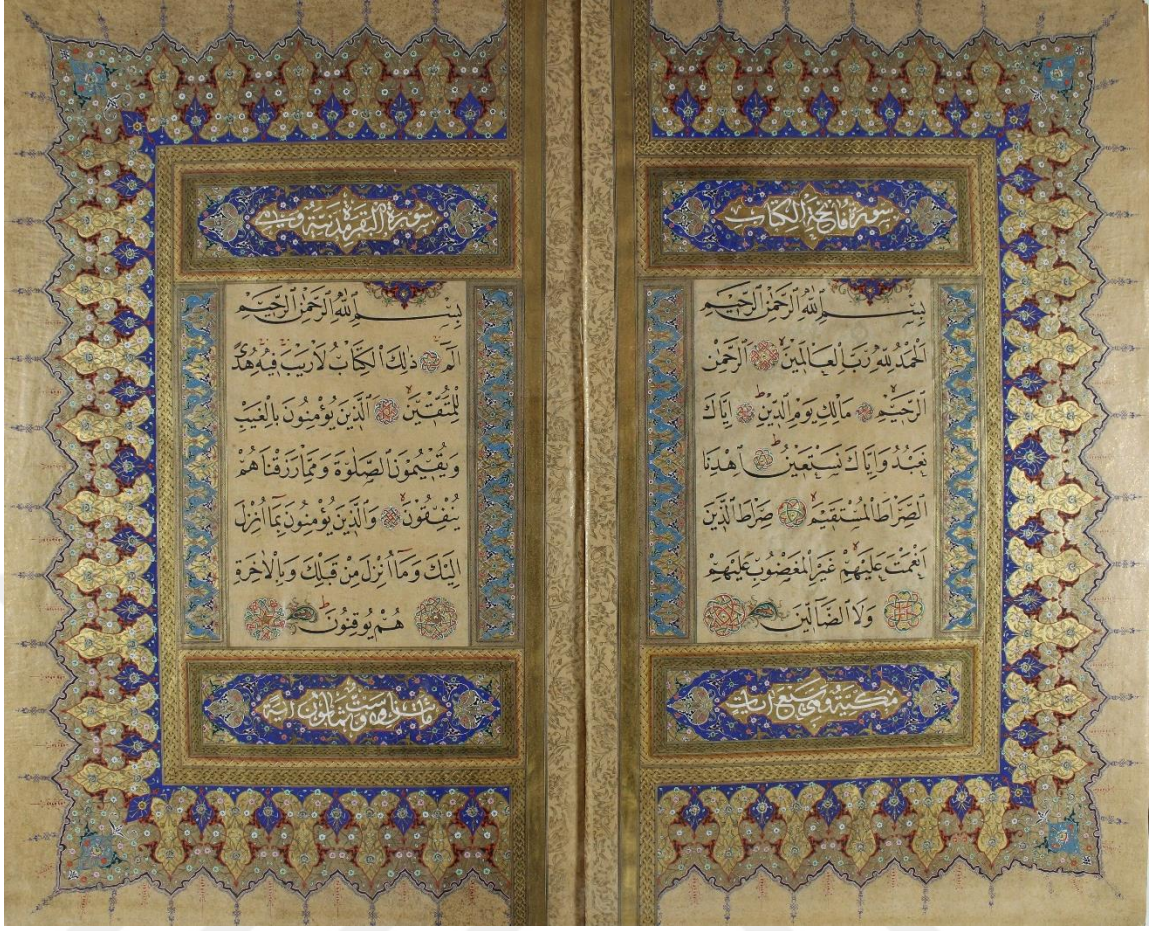 سورة فاتحة الكتاب
بِسْمِ ٱللّٰهِ ٱلرَّحْمٰنِ ٱلرَّحِيمِ
اَلْحَمْدُ لِلّٰهِ رَبِّ الْعَالَمِينَ اَلرَّحْمٰنِ
الرَّحِيمِ مَالِكِ يَوْمِ الدِّينِ اِيَّاكَ
نَعْبُدُ وَاِيَّاكَ نَسْتَعِينُ اِهْدِنَا
الصِّرَاطَ الْمُسْتَقِيمَ صِرَاطَ الَّذِينَ
اَنْعَمْتَ عَلَيْهِمْ غَيْرِ الْمَغْضُوبِ عَلَيْهِمْ
وَلَا الضَّالِّينَ
مكية وهي سبع ايات
سورة البقرة مدنية وهي
بِسْمِ ٱللّٰهِ ٱلرَّحْمٰنِ ٱلرَّحِيمِ
الٓمٓ ذٰلِكَ الْكِتَابُ لَا رَيْبَ فِيهِ هُدًى
لِلْمُتَّقِينَ اَلَّذِينَ يُؤْمِنُونَ بِالْغَيْبِ
وَيُقِيمُونَ الصَّلٰوةَ وَمِمَّا رَزَقْنَاهُمْ
يُنْفِقُونَ وَالَّذِينَ يُؤْمِنُونَ بِمَٓا اُنْزِلَ
اِلَيْكَ وَمَٓا اُنْزِلَ مِنْ قَبْلِكَ وَبِالْاٰخِرَةِ
هُمْ يُوقِنُونَ
وست وثمانون اية